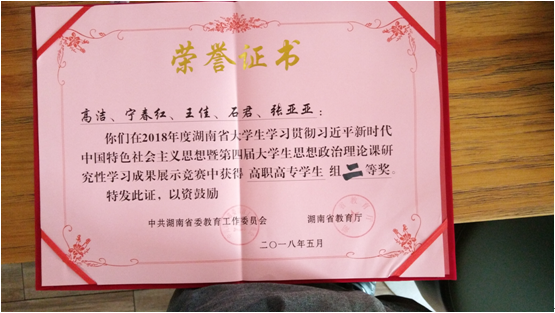 荣誉证书
高洁、宁春红、王佳、石君、张亚亚：
你们在2018年度湖南省大学生学习贯彻习近平新时代
中国特色社会主义思想暨第四届大学生思想政治理论课研
究性学习成果展示竞赛中获得 高职高专学生 组 二 等奖。
特发此证，以资鼓励
中共湖南省委教育工作委员会 湖南省教育厅
二〇一八年五月